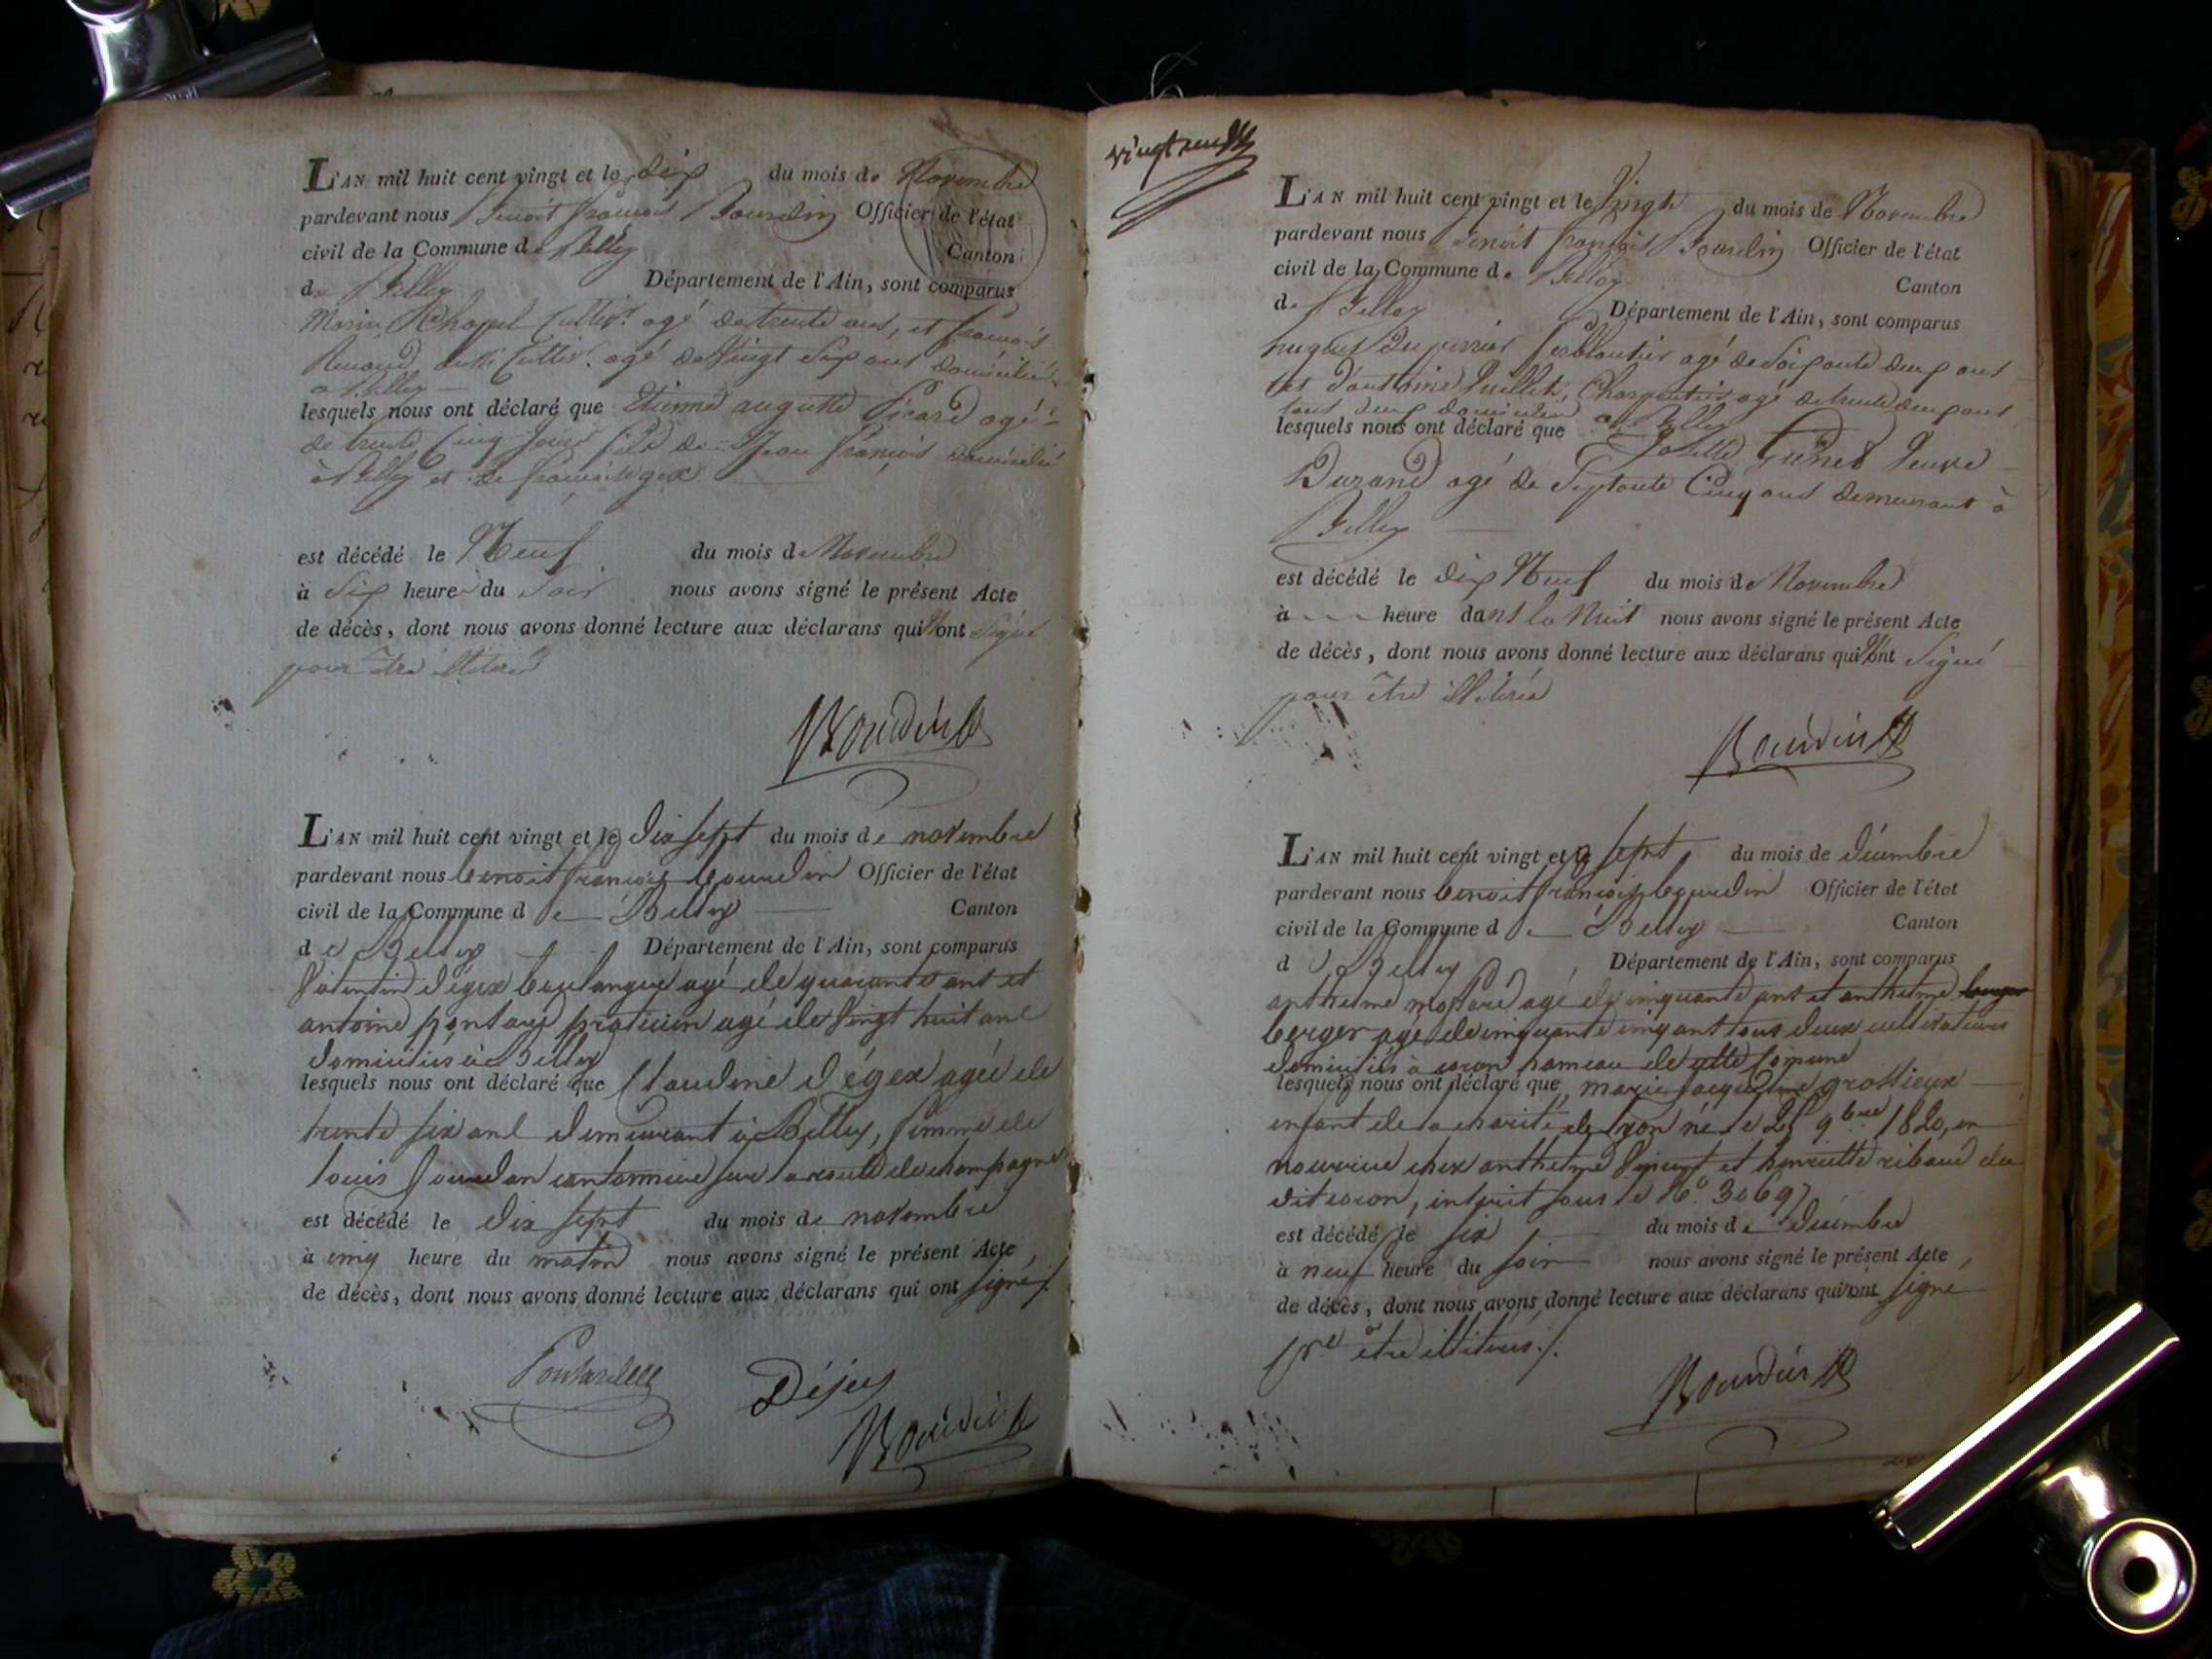 L'AN mil huit cent vingt et le dix du mois de Novembre
pardevant nous Benoit françois Bourdin Officier de l'état
civil de la Commune de Belley Canton
de Belley Département de l'Ain, sont comparus
Marin Chapel Cultivr. agé de trente ans, et françois
Renaud aussi Cultivr. agé de Vingt Six ans domiciliés
a Belley
lesquels nous ont déclaré que Etienne auguste Picard agé
de trente Cinq jours fils de Jean françois domicilié
à Belley et de françoise gex
est décédé le Neuf du mois de Novembre
à Six heure du Soir nous avons signé le présent Acte
de décès, dont nous avons donné lecture aux déclarans qui n'ont Signé
pour être illitérés
Bourdin
L'AN mil huit cent vingt et le dix sept du mois de novembre
pardevant nous benoit françois bourdin Officier de l'état
civil de la Commune de Belley Canton
de Belley Département de l'Ain, sont comparus
Valentin dégex boulanger agé de quarante ans et
antoine praticien agé de Vingt huit ans
domiciliés à Belley
lesquels nous ont déclaré que Claudine dégex agée de
trente six ans demeurant à Belley, femme de
louis Jourdan cantonnier sur la route de champagne
est décédé le dix sept du mois de novembre
à cinq heure du matin nous avons signé le présent Acte,
de décès, dont nous avons donné lecture aux déclarans qui ont signés ./.
Bourdin
vingt neuf
L'AN mil huit cent vingt et le Vingt du mois de Novembre
pardevant nous Benoit françois Bourdin Officier de l'état
civil de la Commune de Belley Canton
de Belley Département de l'Ain, sont comparus
hugues ferblantier agé de Soixante deux ans
et d'antoine Puillet, Charpentier agé de trente deux ans
tous deux domiciliés a Belley
lesquels nous ont déclaré que Josette Veuve
Durand agé de Septante Cinq ans demeurant à
Belley
est décédé le dix Neuf du mois de Novembre
à heure dans la Nuit nous avons signé le présent Acte
de décès, dont nous avons donné lecture aux déclarans qui n'ont Signé
pour être illitérés
Bourdin
L'AN mil huit cent vingt et le sept du mois de décembre
pardevant nous benoit françois bourdin Officier de l'état
civil de la Commune de Belley Canton
de Belley Département de l'Ain, sont comparus
anthelme agé de cinquante ans et anthelme
berger agé de cinquante cinq ans tous deux cultivateurs
domiciliés à coron hameau de cette Comune
lesquels nous ont déclaré que marie jacqueline grossieux
enfant de la charité de lyon né le 25 9bre 1820, en
nourrice chez anthelme Vincent et henriette ribaud du
dit coron, inscrit sous le No. 3069
est décédé le six du mois de décembre
à neuf heure du soir nous avons signé le présent Acte,
de décès, dont nous avons donné lecture aux déclarans qui n'ont signé
pre être illitérés ./.
Bourdin